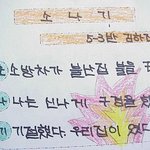 소나기
5-3반 김하
소방차가 불난집 불을
나는 신나게 구경을
기절했다. 우리집이 었다